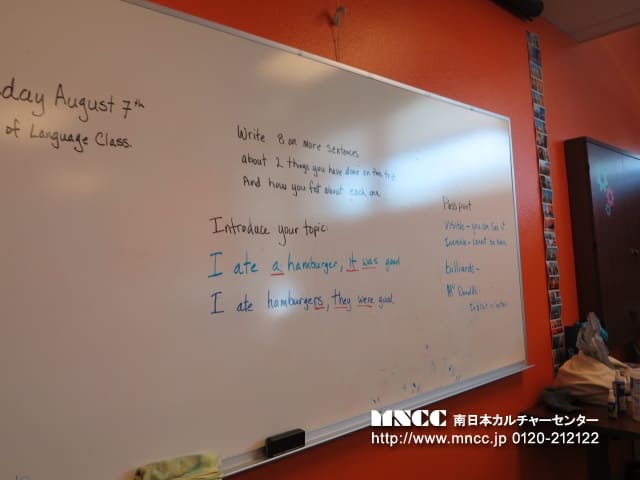 day August 7th
of Language Class.
Write 8 or more sentences
about 2 things you have done on this trip
And how you felt about each one
Introduce your topic:
I ate a hamburger, it was good
I ate hamburgers, they were good.
Passport
visible - you can see it
billiards -
MNCC 南日本カルチャーセンター
http://www.mncc.jp 0120-212122